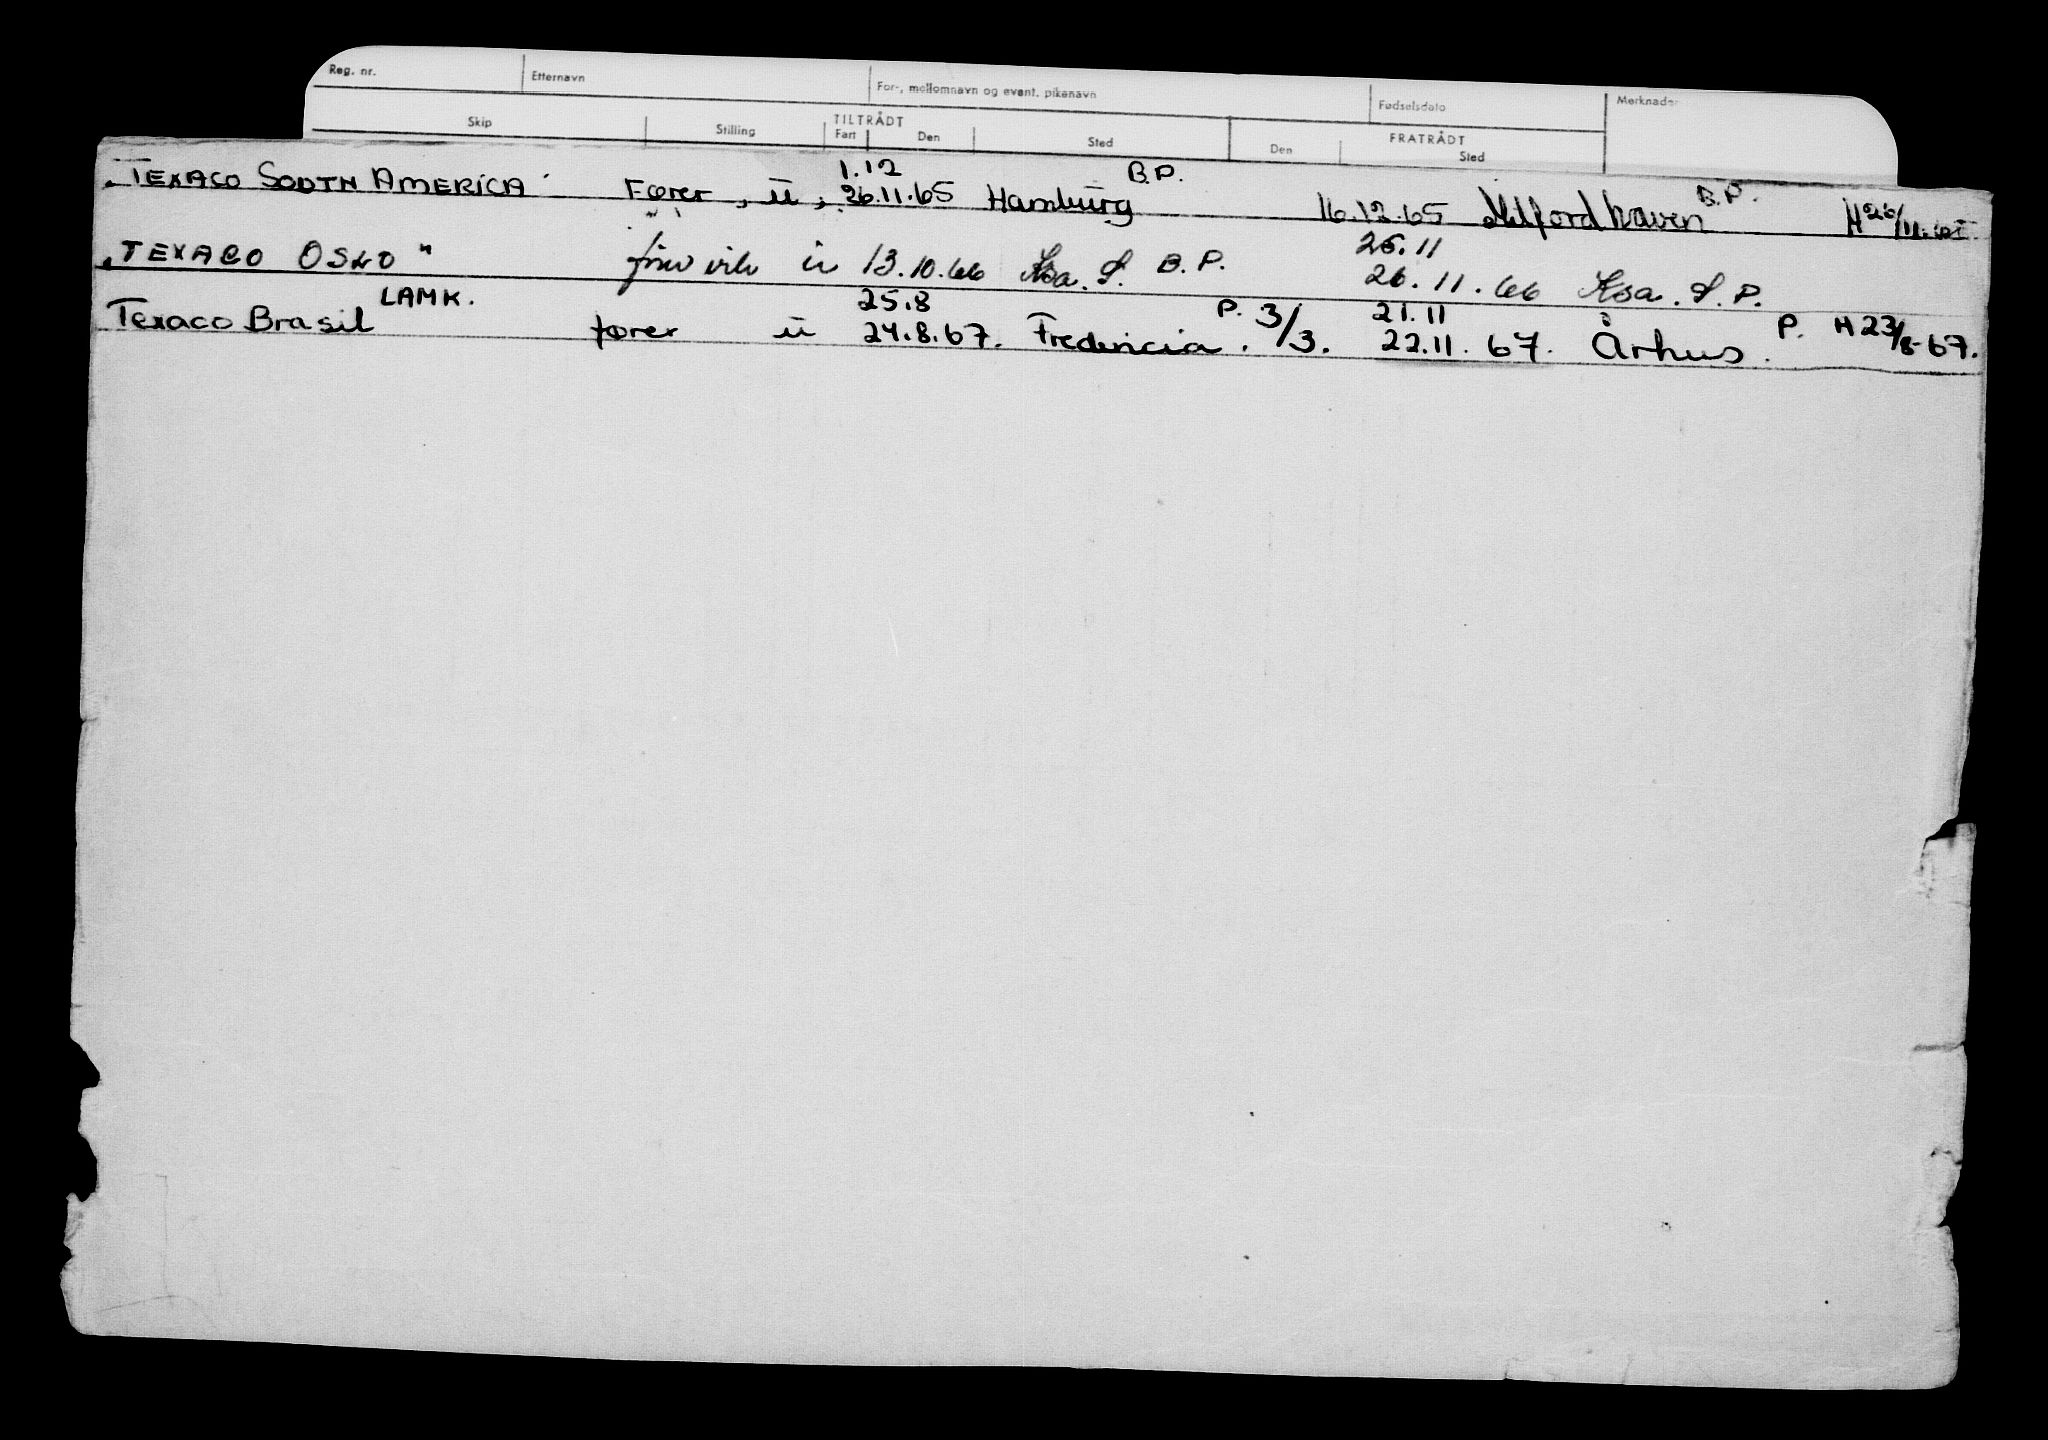 Reg. nr. Etternavn For-, mellomnavn og event. pikenavn Fødselsdato Merknader
Skip Stilling TILTRÅDT Fart Den Sted Den FRATRÅDT Sted
1.12 B.P. B.P.
"TEXACO SOUTH AMERICA" Fører, ū, 26.11.65 Hamburg 16.12.65 Milford haven H 26/11.65.
26.11
"TEXACO OSLO" ū 13.10.66 Ksa. S. B.P. 26.11.66 Ksa. S. P.
LAMK. 25.8 P. 3/3. 21.11 P.
Texaco Brasil fører ū 24.8.67. Fredericia. 22.11.67. Århus. H 23/8-67.